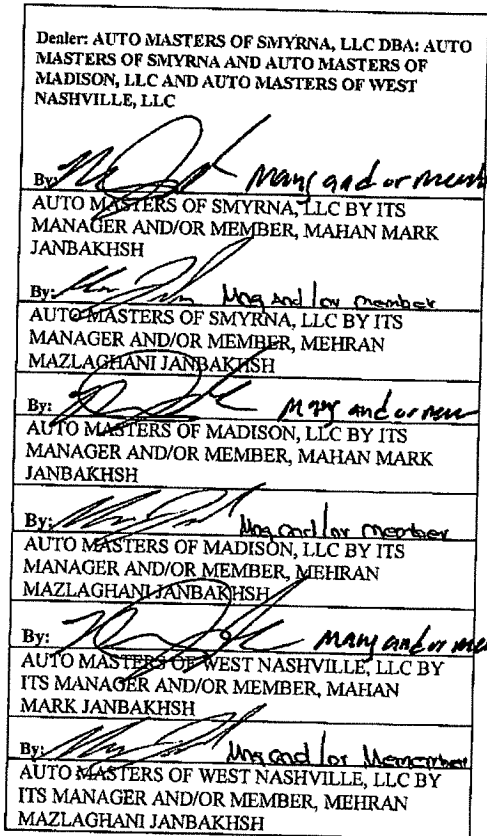 Dealer: AUTO MASTERS OF SMYRNA, LLC DBA: AUTO
MASTERS OF SMYRNA AND AUTO MASTERS OF
MADISON, LLC AND AUTO MASTERS OF WEST
NASHVILLE, LLC
By: Mang and or
AUTO MASTERS OF SMYRNA, LLC BY ITS
MANAGER AND/OR MEMBER, MAHAN MARK
JANBAKHSH
By: Mng and/or member
AUTO MASTERS OF SMYRNA, LLC BY ITS
MANAGER AND/OR MEMBER, MEHRAN
MAZLAGHANI JANBAKHSH
By: Mang and or
AUTO MASTERS OF MADISON, LLC BY ITS
MANAGER AND/OR MEMBER, MAHAN MARK
JANBAKHSH
By: Mng and/or member
AUTO MASTERS OF MADISON, LLC BY ITS
MANAGER AND/OR MEMBER, MEHRAN
MAZLAGHANI JANBAKHSH
By: Mang and or
AUTO MASTERS OF WEST NASHVILLE, LLC BY
ITS MANAGER AND/OR MEMBER, MAHAN
MARK JANBAKHSH
By: Mng and/or Memember
AUTO MASTERS OF WEST NASHVILLE, LLC BY
ITS MANAGER AND/OR MEMBER, MEHRAN
MAZLAGHANI JANBAKHSH